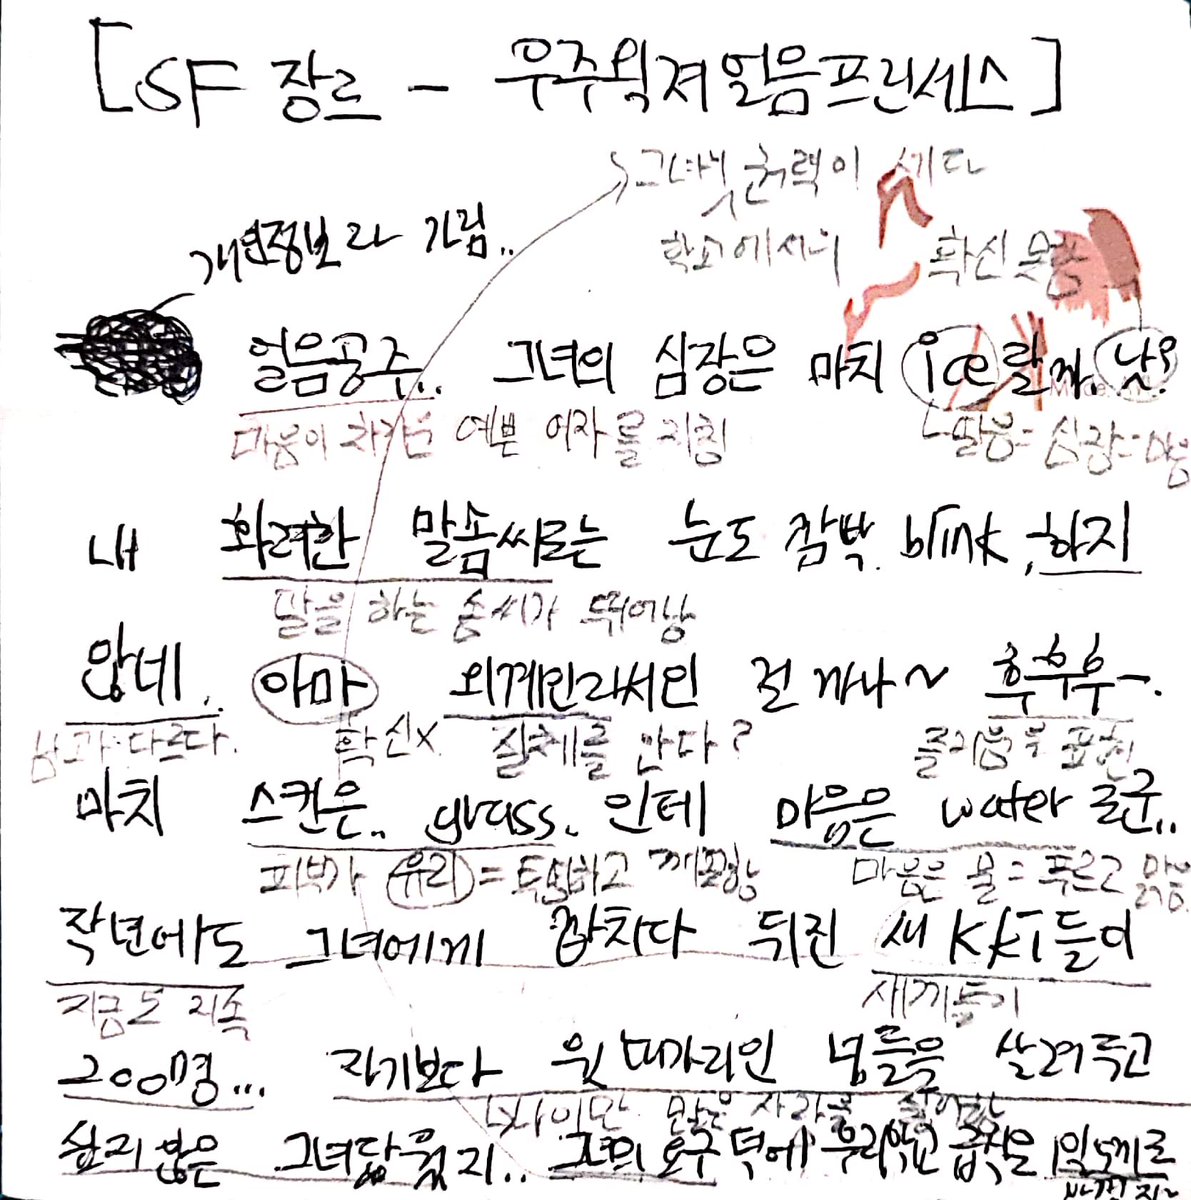 [SF 장르 - 우주윅져얼음프린세스]
그녀는 권력이 세다
학교에서니 확신 못함
개인정보라 가림..
얼음공주.. 그녀의 심장은 마치 ice랄까, 낫?
마음이 차가운 예쁜 여자를 지칭
얼음=심장=마음
내 화려한 말솜씨로는 눈도 깜박 blink, 하지
말을 하는 솜씨가 뛰어남
않네.. 아마 외계인라서인 걸까나~ 후후후ㅡ.
남과 다르다. 확신X 실체를 안다? 즐거움을 표현
마치 스킨은.. grass. 인테 마음은 water로군..
피부가 유리=투명하고 깨끗함 마음은 물=푸르고 맑음
작년에도 그녀에게 깝치다 뒤진 새KKI들이
지금도 지속 새끼들이
200명... 자기보다 윗대가리인 놈들은 살려두고
나이만 많은 자라를 싫어함
싶지 않은 그녀답웠지.. 그녀의 요구 덕에 우리학교 급식은 1일 1끼로